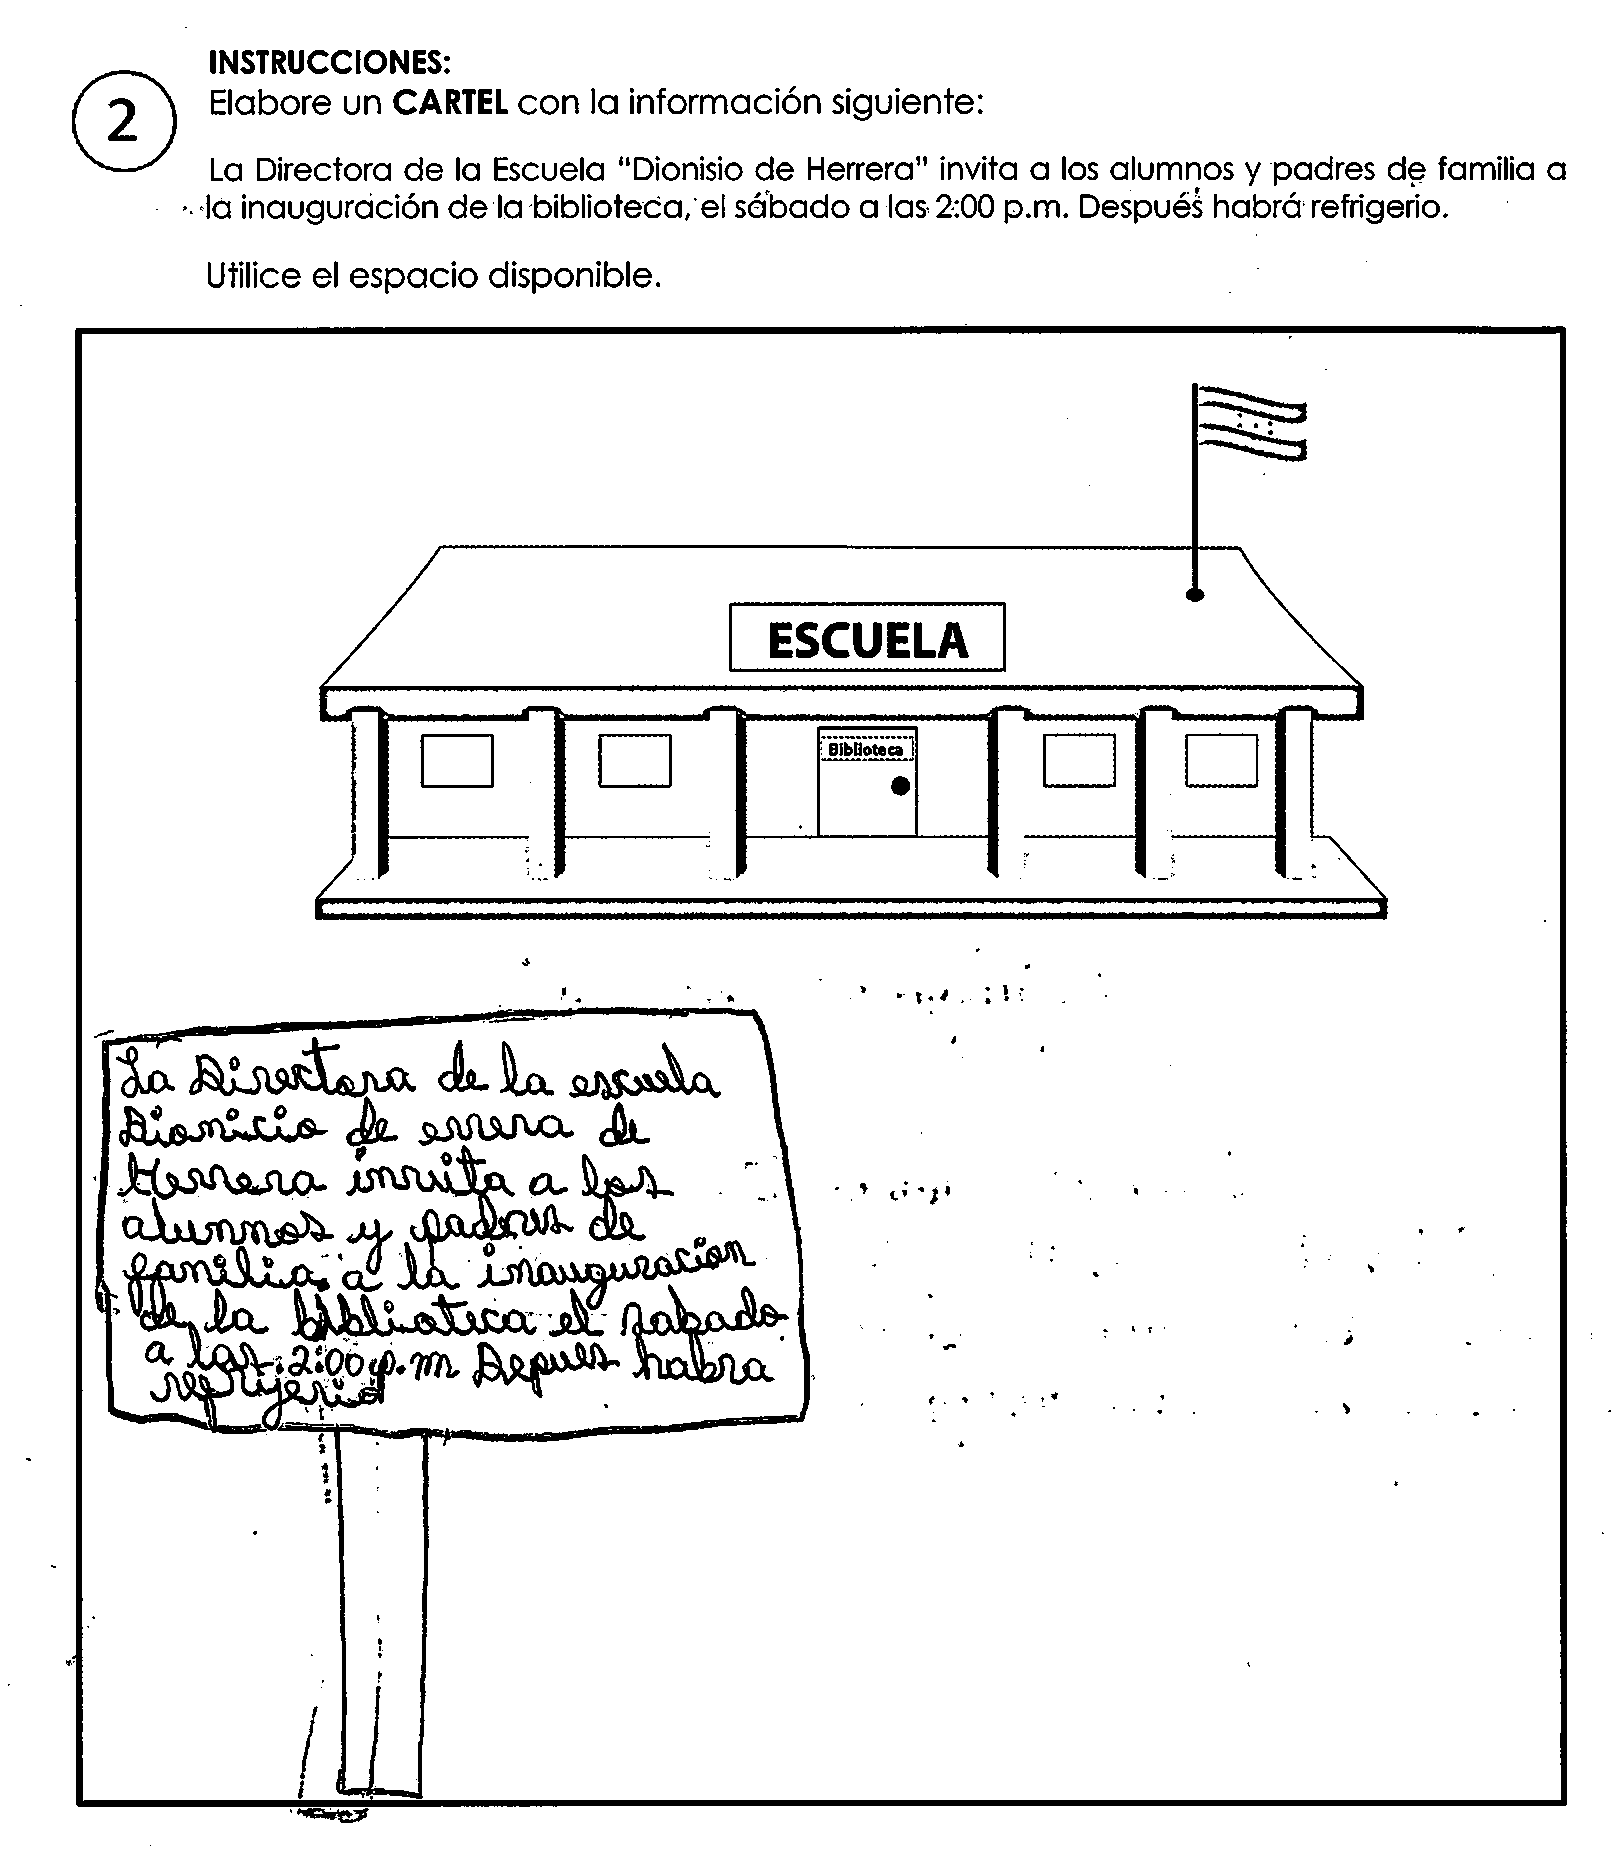 INSTRUCCIONES:
2
Elabore un CARTEL con la información siguiente:
La Directora de la Escuela "Dionisio de Herrera" invita a los alumnos y padres de familia a
la inauguración de la biblioteca, el sábado a las 2:00 p.m. Después habrá refrigerio.
Utilice el espacio disponible.
ESCUELA
Biblioteca
La Directora de la escuela
Dionicio de errera de
Herrera invita a los
alunnos y padres de
familia. a la inauguracion
de la biblioteca el sabado
a las 2:00 p.m Depues habra
refrijerio